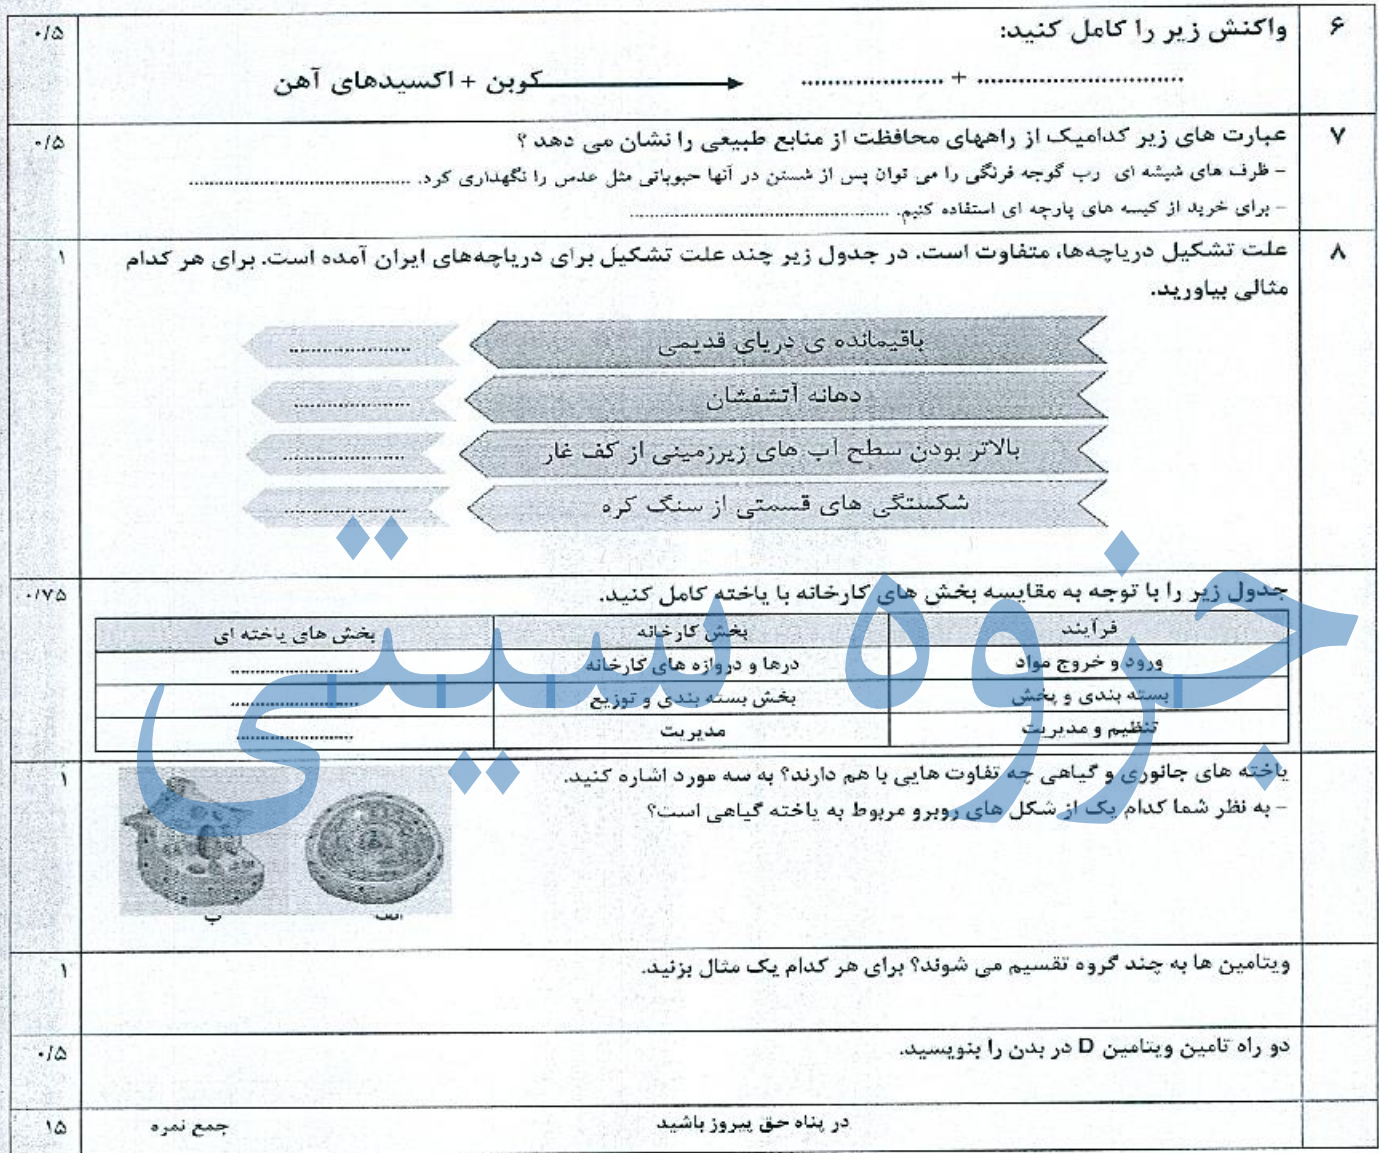 ۶ واکنش زیر را کامل کنید: ۰/۵
کربن + اکسیدهای آهن .................... + ..............................
۷ عبارت های زیر کدامیک از راههای محافظت از منابع طبیعی را نشان می دهد ؟ ۰/۵
- ظرف های شیشه ای رب گوجه فرنگی را می توان پس از شستن در آنها حبوباتی مثل عدس را نگهداری کرد. ........................................
- برای خرید از کیسه های پارچه ای استفاده کنیم. ................................................
۸ علت تشکیل دریاچه‌ها، متفاوت است. در جدول زیر چند علت تشکیل برای دریاچه‌های ایران آمده است. برای هر کدام ۱
مثالی بیاورید.
باقیمانده ی دریای قدیمی ....................
دهانه آتشفشان ....................
بالاتر بودن سطح آب های زیرزمینی از کف غار ....................
شکستگی های قسمتی از سنگ کره ....................
جدول زیر را با توجه به مقایسه بخش های کارخانه با یاخته کامل کنید. ۰/۷۵
فرآیند بخش کارخانه بخش های یاخته ای
ورود و خروج مواد درها و دروازه های کارخانه ......................
بسته بندی و پخش بخش بسته بندی و توزیع ......................
تنظیم و مدیریت مدیریت ......................
یاخته های جانوری و گیاهی چه تفاوت هایی با هم دارند؟ به سه مورد اشاره کنید. ۱
- به نظر شما کدام یک از شکل های روبرو مربوط به یاخته گیاهی است؟
الف ب
ویتامین ها به چند گروه تقسیم می شوند؟ برای هر کدام یک مثال بزنید. ۱
دو راه تامین ویتامین D در بدن را بنویسید. ۰/۵
در پناه حق پیروز باشید جمع نمره ۱۵
جزوه سیتی